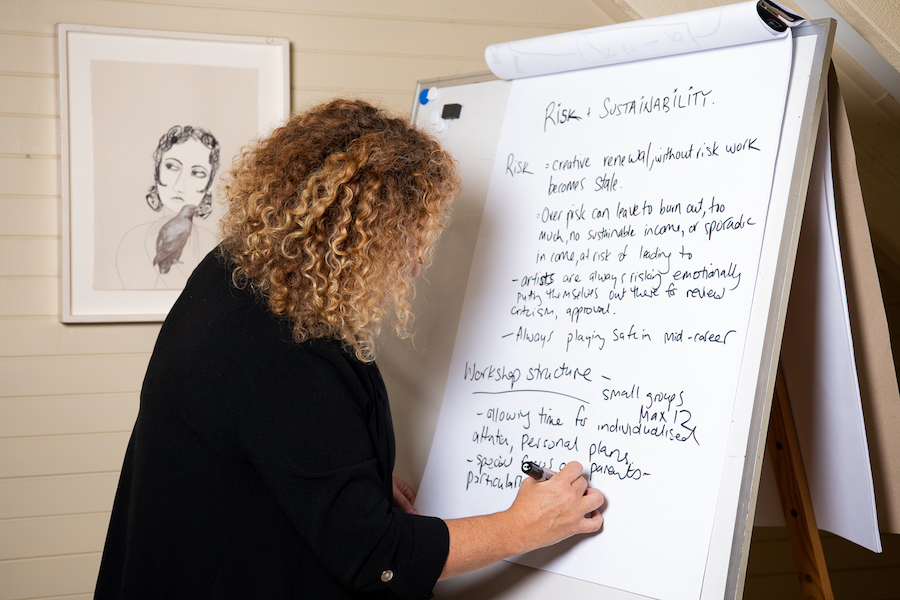 Risk + SUSTAINABILITY.
Risk = creative renewal, without risk work
becomes stale.
: Over risk can leave to burn out, too
much, no sustainable income, or sporadic
in come, at risk of leading to
- artists are always risking emotionally
putting themselves out there for review
criticism, approval.
- Always playing safe in mid-career
Workshop structure -
small groups
Max 12
- allowing time for individualised
attention, personal plans,
- special focus on parents-
particular